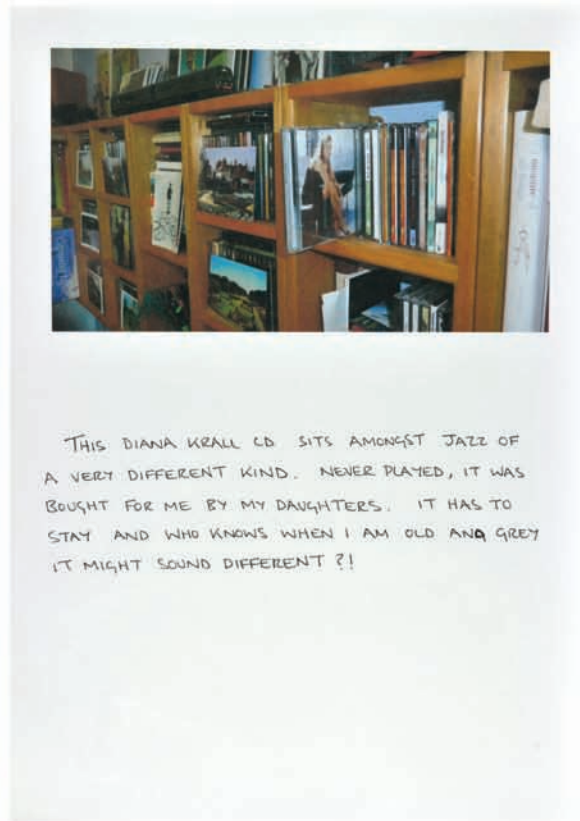 THIS DIANA KRALL CD SITS AMONGST JAZZ OF
A VERY DIFFERENT KIND. NEVER PLAYED, IT WAS
BOUGHT FOR ME BY MY DAUGHTERS. IT HAS TO
STAY AND WHO KNOWS WHEN I AM OLD AND GREY
IT MIGHT SOUND DIFFERENT ?!